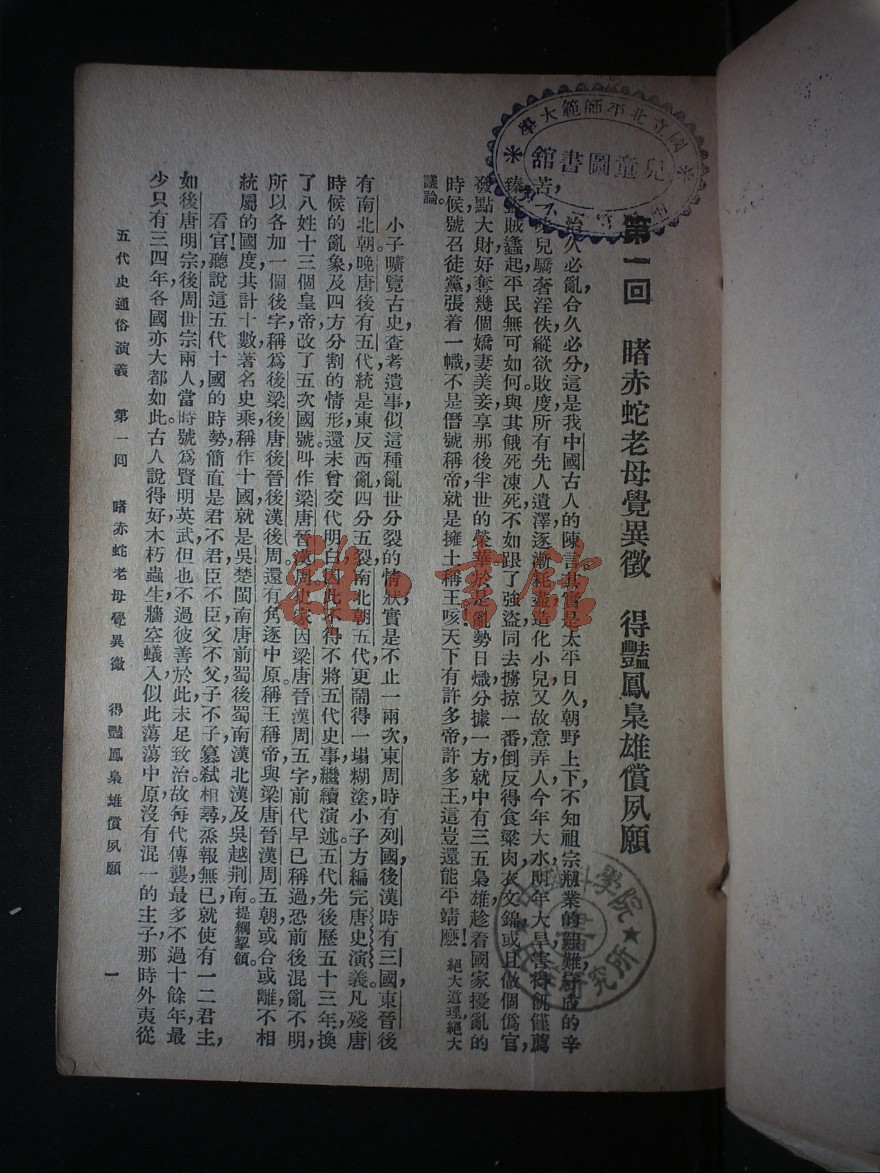 國立北平師範大學
兒童圖書館
第一回　睹赤蛇老母覺異徵　得豔鳳梟雄償夙願
治久必亂，合久必分，這是我中國古人的陳言，其實是太平日久，朝野上下，不知祖宗創業的艱難，守成的辛
苦，兒驕奢淫佚，縱欲敗度，所有先人遺澤，逐漸耗盡，造化小兒，又故意弄人，今年大水，明年大旱，害得饑饉薦
臻，盜賊蠭起，平民無可如何，與其餓死凍死，不如跟了強盜，同去擄掠一番，倒反得食粱肉，衣文錦，或且做個僞官，
發點大財，好奪幾個嬌妻美妾，享那後半世的榮華，於是亂勢日熾，分據一方，就中有三五梟雄，趁着國家擾亂的
時候，號召徒黨，張着一幟，不是僭號稱帝，就是擁土稱王，咳天下有許多帝，許多王，這豈還能平靖麽！絕大道理絕大
議論。
小子曠覽古史，查考遺事，似這種亂世分裂的情狀，實是不止一兩次，東周時有列國，後漢時有三國，東晉後
有南北朝，晚唐後有五代，統是東反西亂，四分五裂，南北朝五代，更鬧得一場糊塗，小子方編完唐史演義，凡殘唐
時候的亂象，及四方分割的情形，還未曾交代明白，因此不得不將五代史事，繼續演述。五代先後歷五十三年，換
了八姓十三個皇帝，改了五次國號，叫作梁唐晉漢周，史家因梁唐晉漢周五字，前代早已稱過，恐前後混亂不明，
所以各加一個後字，稱爲後梁後唐後晉後漢後周。還有角逐中原，稱王稱帝，與梁唐晉漢周五朝，或合或離，不相
統屬的國度，共計十數，著名史乘，稱作十國，就是吳楚閩南唐前蜀後蜀南漢北漢及吳越荆南。提綱挈領。
看官聽說！這五代十國的時勢，簡直是君不君，臣不臣，父不父，子不子，篡弒相尋，烝報無已，就使有一二君主，
如後唐明宗後周世宗兩人，當時號爲賢明英武，但也不過彼善於此，未足致治。故每代傳襲，最多不過十餘年，最
少只有三四年，各國亦大都如此。古人說得好，木朽蟲生，牆空蟻入，似此蕩蕩中原，沒有混一的主子，那時外夷從
五代史通俗演義　第一回　睹赤蛇老母覺異徵　得豔鳳梟雄償夙願　一
學院
研究所
雜·書館